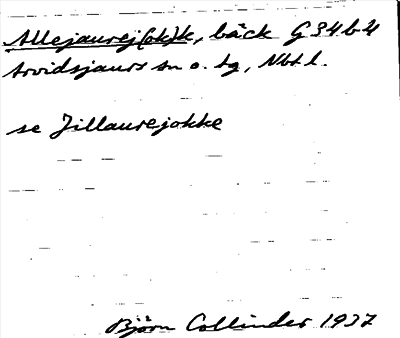 Allejaurej(ok)k, bäck G34b4
Arvidsjaurs sn o. tg, Nbtl.
se Jillaurejokke
Björn Collinder 1937